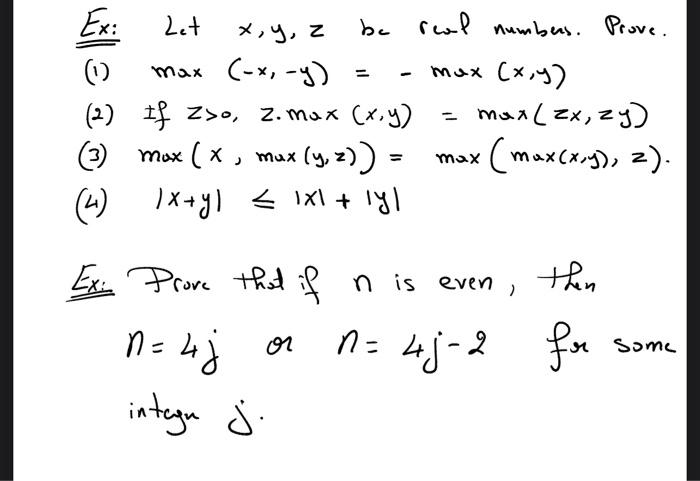 Ex: Let x, y, z be real numbers. Prove.
(1) max (-x, -y) = - max (x,y)
(2) If z>0, z. max (x,y) = max(zx, zy)
(3) max(x, max(y,z)) = max(max(x,y), z).
(4) |x+y| ≤ |x| + |y|
Ex: Prove that if n is even, then
n = 4j or n = 4j-2 for some
integer j.